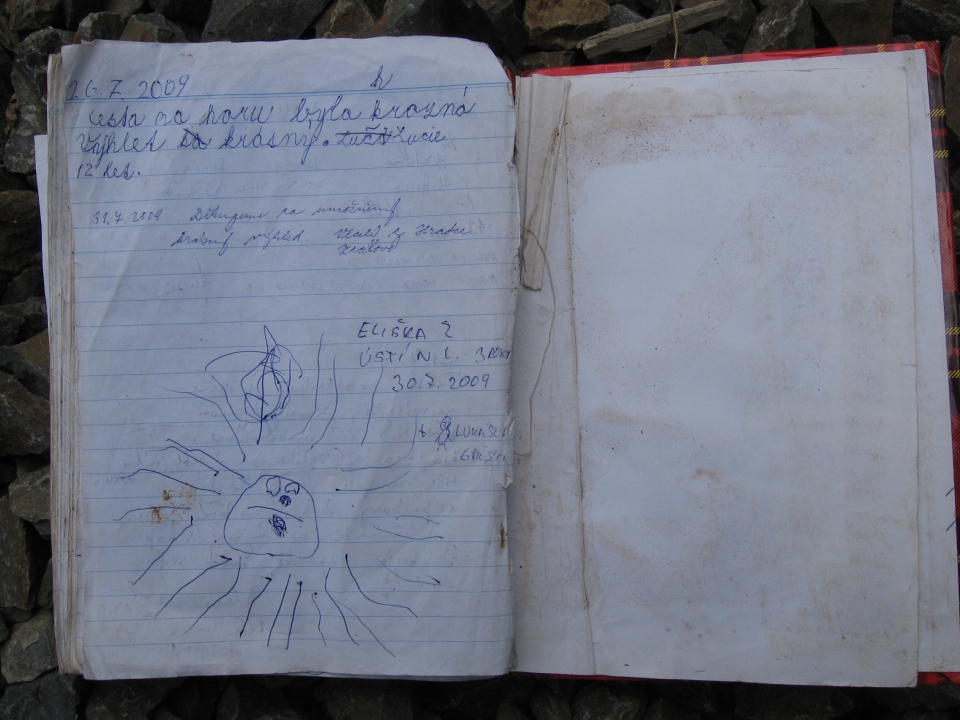 26.7. 2009
h
Cesta na horu byla hrozná
Výhlet krásný. Lucie
12 let.
31.7.2009 Děkujeme za umožněný
krásný výhled Věali z Hradce
Králové
ELIŠKA Z
ÚSTÍ N. L. 3 ROKY
30.7. 2009